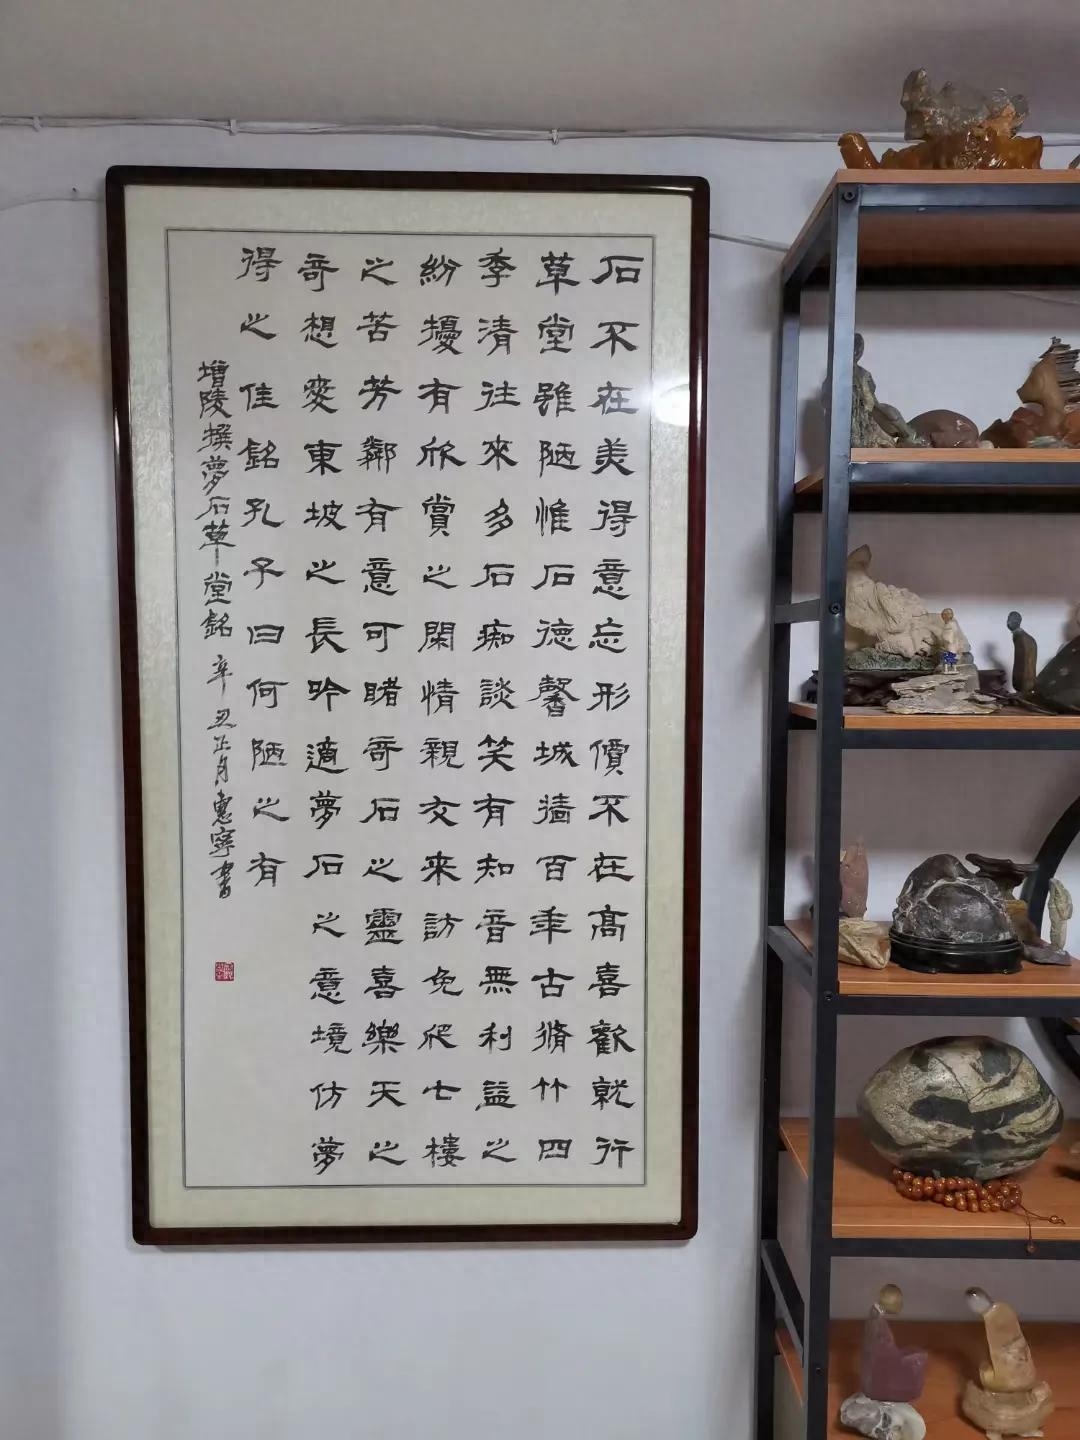 石不在美得意忘形價不在高喜歡就行
草堂雖陋惟石德馨城牆百年古脩竹四
季清往來多石痴談笑有知音無利益之
紛擾有欣賞之閑情親友來訪免爬七樓
之苦芳鄰有意可睹奇石之靈喜樂天之
奇想愛東坡之長吟適夢石之意境仿夢
得之佳銘孔子曰何陋之有
增陵撰夢石草堂銘 辛丑正月惠寧書